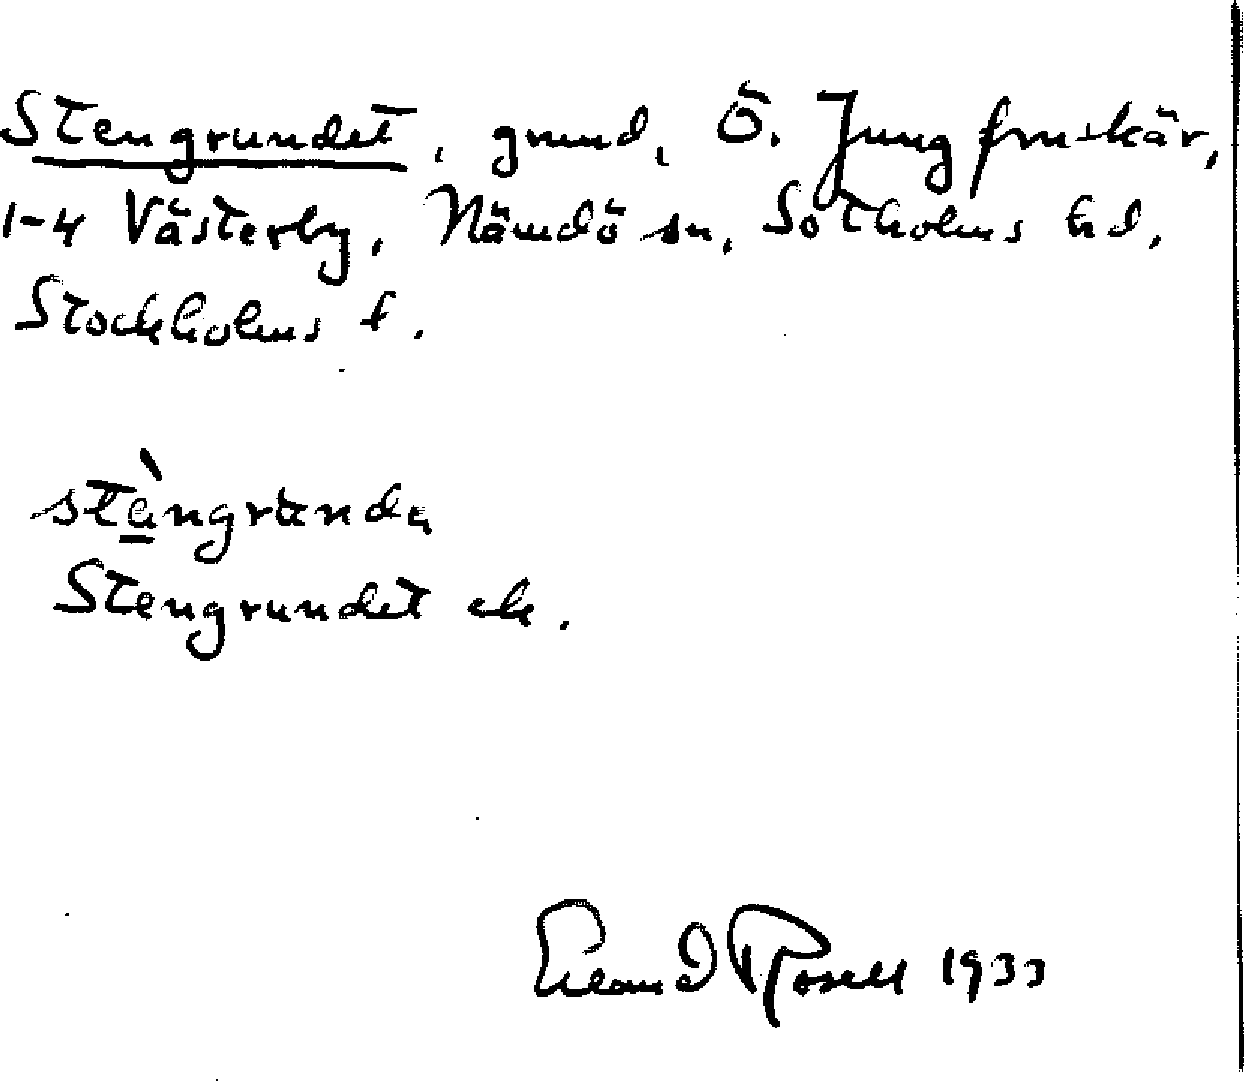 Stengrundet, grund, Ö. Jungfruskär,
1-4 Västerby, Nämdö sn, Sotholms hd,
Stockholms l.
Stengrundet ek.
Erland Rosell 1933